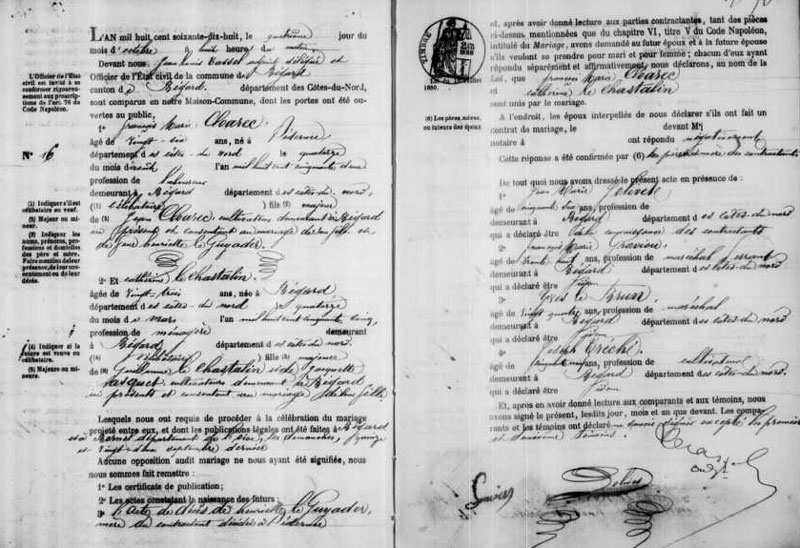 L'AN mil huit cent soixante-dix-huit, le quatrième jour du
mois d'octobre à huit heures du matin,
Devant nous
Officier de l'État civil de la commune de Bégard
canton de Bégard, département des Côtes-du-Nord,
sont comparus en notre Maison-Commune, dont les portes ont été ou-
vertes au public,
1° françois Marie Choarec
âgé de vingt-six ans, né à Pédernec
département des côtes du nord le quatorze
du mois d'août l'an mil huit cent cinquante deux
profession de laboureur
demeurant à Bégard département des côtes du nord.
(1) célibataire ) fils (2) majeur
de (3) Choarec cultivateur demeurant à Bégard
ici présent et consentant au mariage de son fils et
de feue henriette le Guyader.
2° Et catherine le Chastalin
âgée de vingt-trois ans, née à Bégard
département des côtes du nord le quatorze
du mois de mars l'an mil huit cent cinquante cinq
profession de ménagère demeurant
à Bégard département des côtes du nord.
(4) célibataire ) fille (5) majeure
de Guillaume le Chastalin et de Jacquette
cultivateurs demeurant à Bégard
ici présents et consentant au mariage de leur fille.
Lesquels nous ont requis de procéder à la célébration du mariage
projeté entre eux, et dont les publications légales ont été faites à Bégard
les dimanches quinze
et vingt-deux septembre dernier
Aucune opposition audit mariage ne nous ayant été signifiée, nous
nous sommes fait remettre :
1° Les certificats de publication ;
2° Les actes constatant la naissance des futurs ;
3° L'acte de décès de henriette le Guyader,
mère du contractant décédée à Pédernec
L'Officier de l'État
civil est invité à se
conformer rigoureu-
sement aux prescrip-
tions de l'art. 76 du
Code Napoléon.
N° 16
(1) Indiquer s'il est
célibataire ou veuf.
(2) Majeur ou mi-
neur.
(3) Indiquer les
noms, prénoms, pro-
fessions et domiciles
des père et mère.
Faire mention de leur
présence, de leur con-
sentement ou de leur
décès.
(4) Indiquer si la
future est veuve ou
célibataire.
(5) Majeure ou mi-
neure.
TIMBRE
et, après avoir donné lecture aux parties contractantes, tant des pièces
ci-dessus mentionnées que du chapitre VI, titre V du Code Napoléon,
intitulé du Mariage, avons demandé au futur époux et à la future épouse
s'ils veulent se prendre pour mari et pour femme ; chacun d'eux ayant
répondu séparément et affirmativement, nous déclarons, au nom de la
Loi, que françois Marie Choarec
et catherine le Chastalin
sont unis par le mariage.
A l'endroit, les époux interpellés de nous déclarer s'ils ont fait un
contrat de mariage, le devant Me
notaire à ont répondu négativement
Cette réponse a été confirmée par (6) les père et mère des contractants
(6) Les pères, mères,
ou tuteurs des époux.
De tout quoi nous avons dressé le présent acte en présence de :
1° Jean Marie
âgé de cinquante ans, profession de
demeurant à Bégard département des côtes du nord
qui a déclaré être connaissance des contractants
2° françois Marie Gravion
âgé de trente huit ans, profession de maréchal ferrant
demeurant à Bégard département des côtes du nord
qui a déclaré être
3° Yves le Brun
âgé de vingt quatre ans, profession de maréchal
demeurant à Bégard département des côtes du nord
qui a déclaré être
4° Tréchi
âgé de ans, profession de cultivateur
demeurant à Bégard département des côtes du nord.
qui a déclaré être
Et, après en avoir donné lecture aux comparants et aux témoins, nous
avons signé le présent, lesdits jour, mois et an que devant. Les compa-
rants et les témoins ont déclaré ne savoir signer excepté les premier
et deuxième témoins.